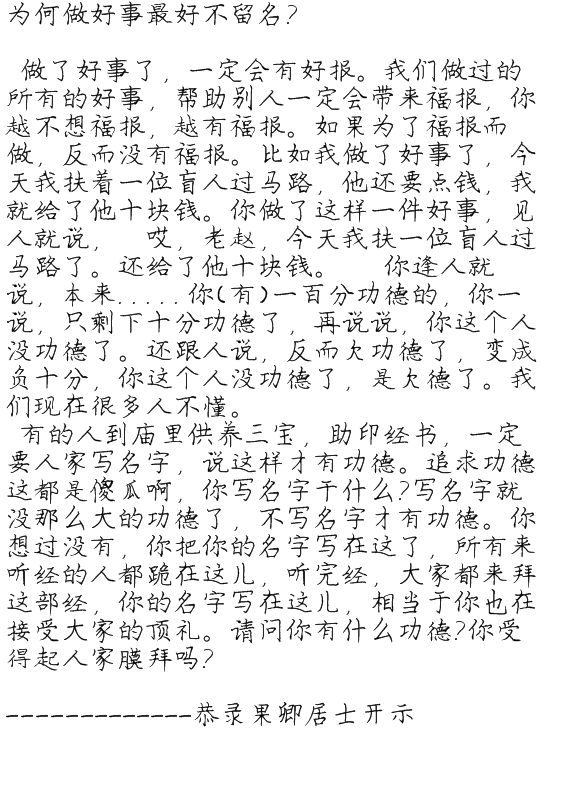 为何做好事最好不留名?
做了好事了，一定会有好报。我们做过的
所有的好事，帮助别人一定会带来福报，你
越不想福报，越有福报。如果为了福报而
做，反而没有福报。比如我做了好事了，今
天我扶着一位盲人过马路，他还要点钱，我
就给了他十块钱。你做了这样一件好事，见
人就说， 哎，老赵，今天我扶一位盲人过
马路了。还给了他十块钱。 你逢人就
说，本来.....你(有)一百分功德的，你一
说，只剩下十分功德了，再说说，你这个人
没功德了。还跟人说，反而欠功德了，变成
负十分，你这个人没功德了，是欠德了。我
们现在很多人不懂。
有的人到庙里供养三宝，助印经书，一定
要人家写名字，说这样才有功德。追求功德
这都是傻瓜啊，你写名字干什么?写名字就
没那么大的功德了，不写名字才有功德。你
想过没有，你把你的名字写在这了，所有来
听经的人都跪在这儿，听完经，大家都来拜
这部经，你的名字写在这儿，相当于你也在
接受大家的顶礼。请问你有什么功德?你受
得起人家膜拜吗?
-------------恭录果卿居士开示